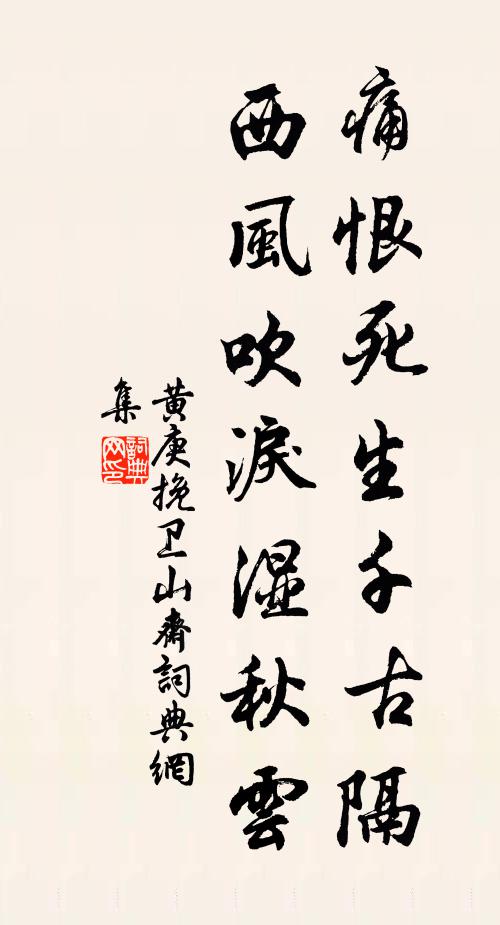 痛恨死生千古隔
西風吹淚湿秋雲
黄庚挽卫山齋詞典網
集
詞典
网印